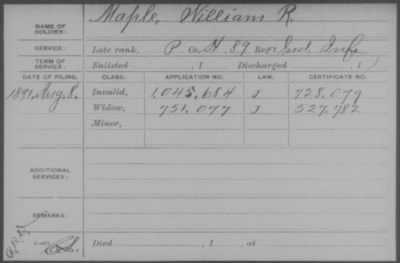 NAME OF SOLDIER: Maple, William R.
SERVICE: Late rank, P Co. H, 89 Reg't Ind. Inf.
TERM OF SERVICE: Enlisted , 1 Discharged , 1
DATE OF FILING. CLASS. APPLICATION NO. LAW. CERTIFICATE NO.
1891, Aug. 8. Invalid, 1,045,684 J 728,079
Widow, 751,077 J 527,782
Minor,
ADDITIONAL SERVICES:
REMARKS:
Died , 1 , at